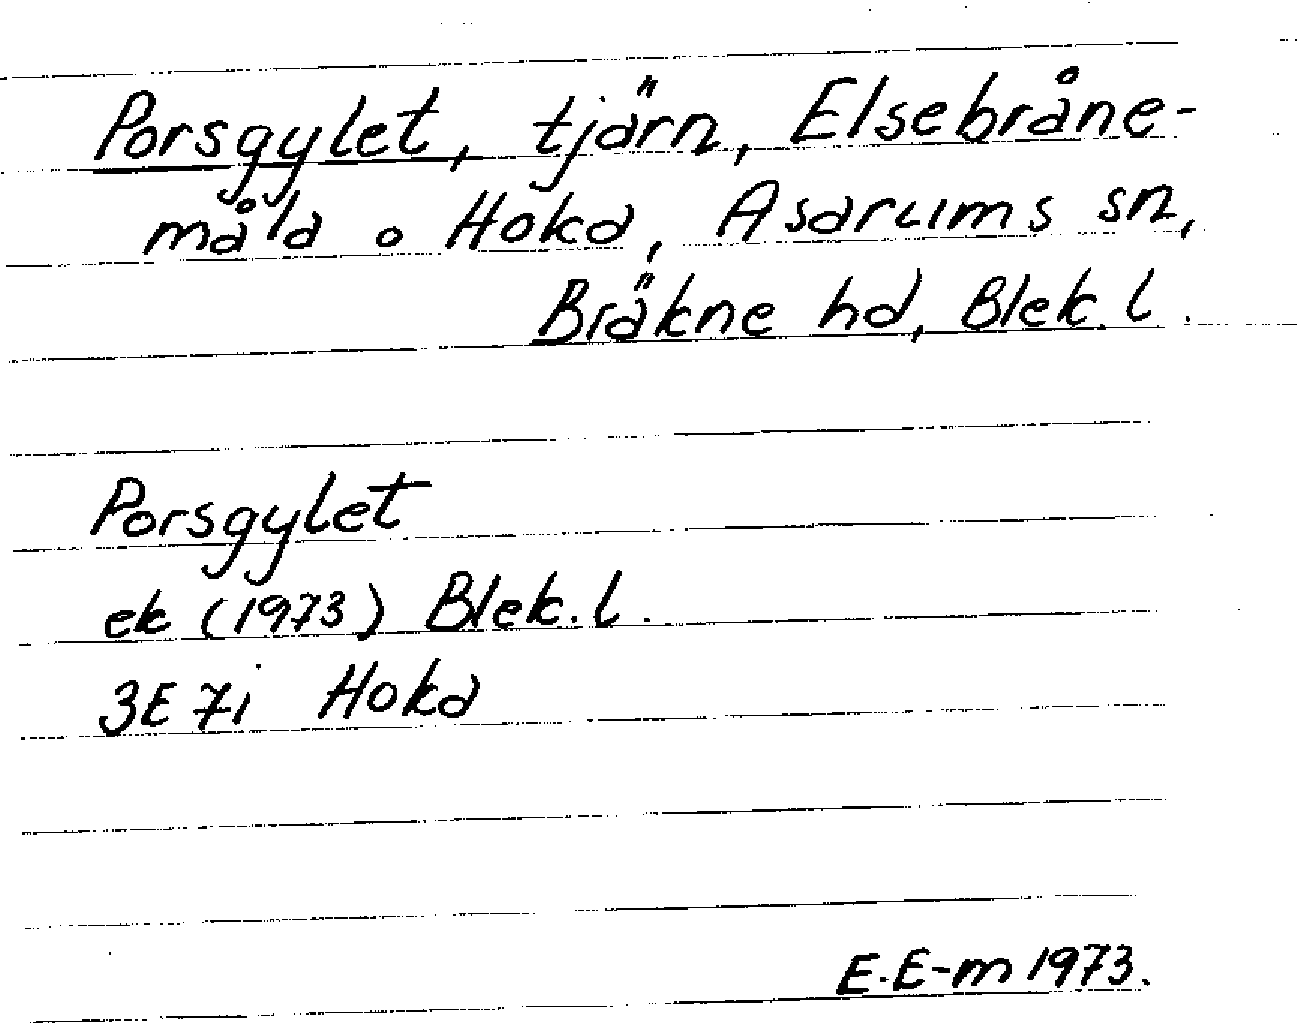 Porsgylet, tjärn, Elsebråne-
måla o Hoka, Asarums sn,
Bräkne hd, Blek. l.
Porsgylet
ek (1973) Blek. l.
3E 7i Hoka
E.E-m 1973.